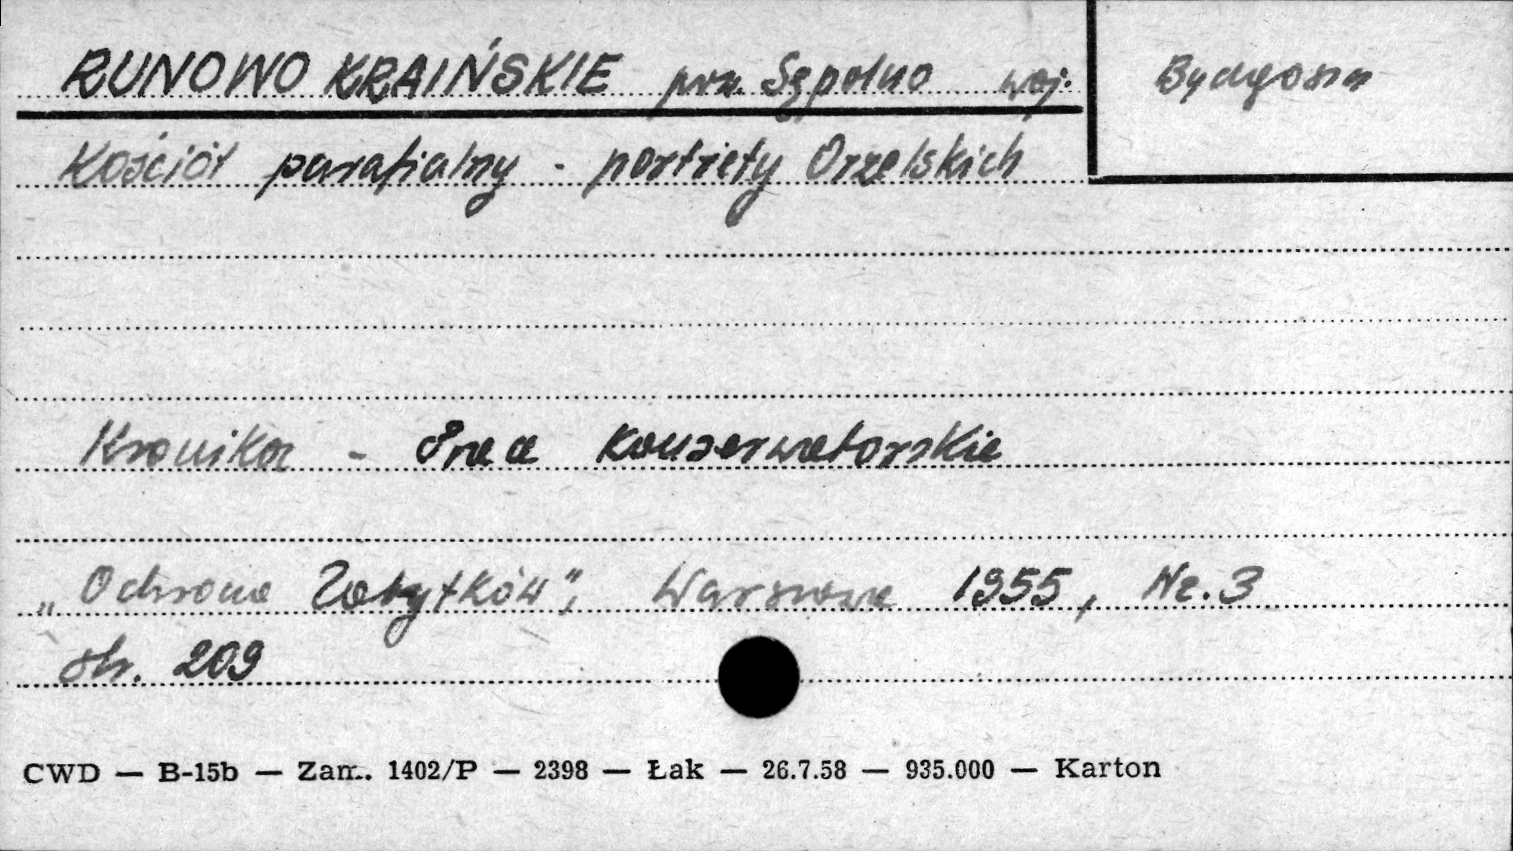 RUNOWO KRAIŃSKIE pow. Sępolno woj. Bydgoszcz
Kościół parafialny - portrety Orzelskich
Kronika - Prace konserwatorskie
„Ochrona Zabytków", Warszawa 1955, Nr. 3
str. 209
CWD — B-15b — Zam. 1402/P — 2398 — Łak — 26.7.58 — 935.000 — Karton